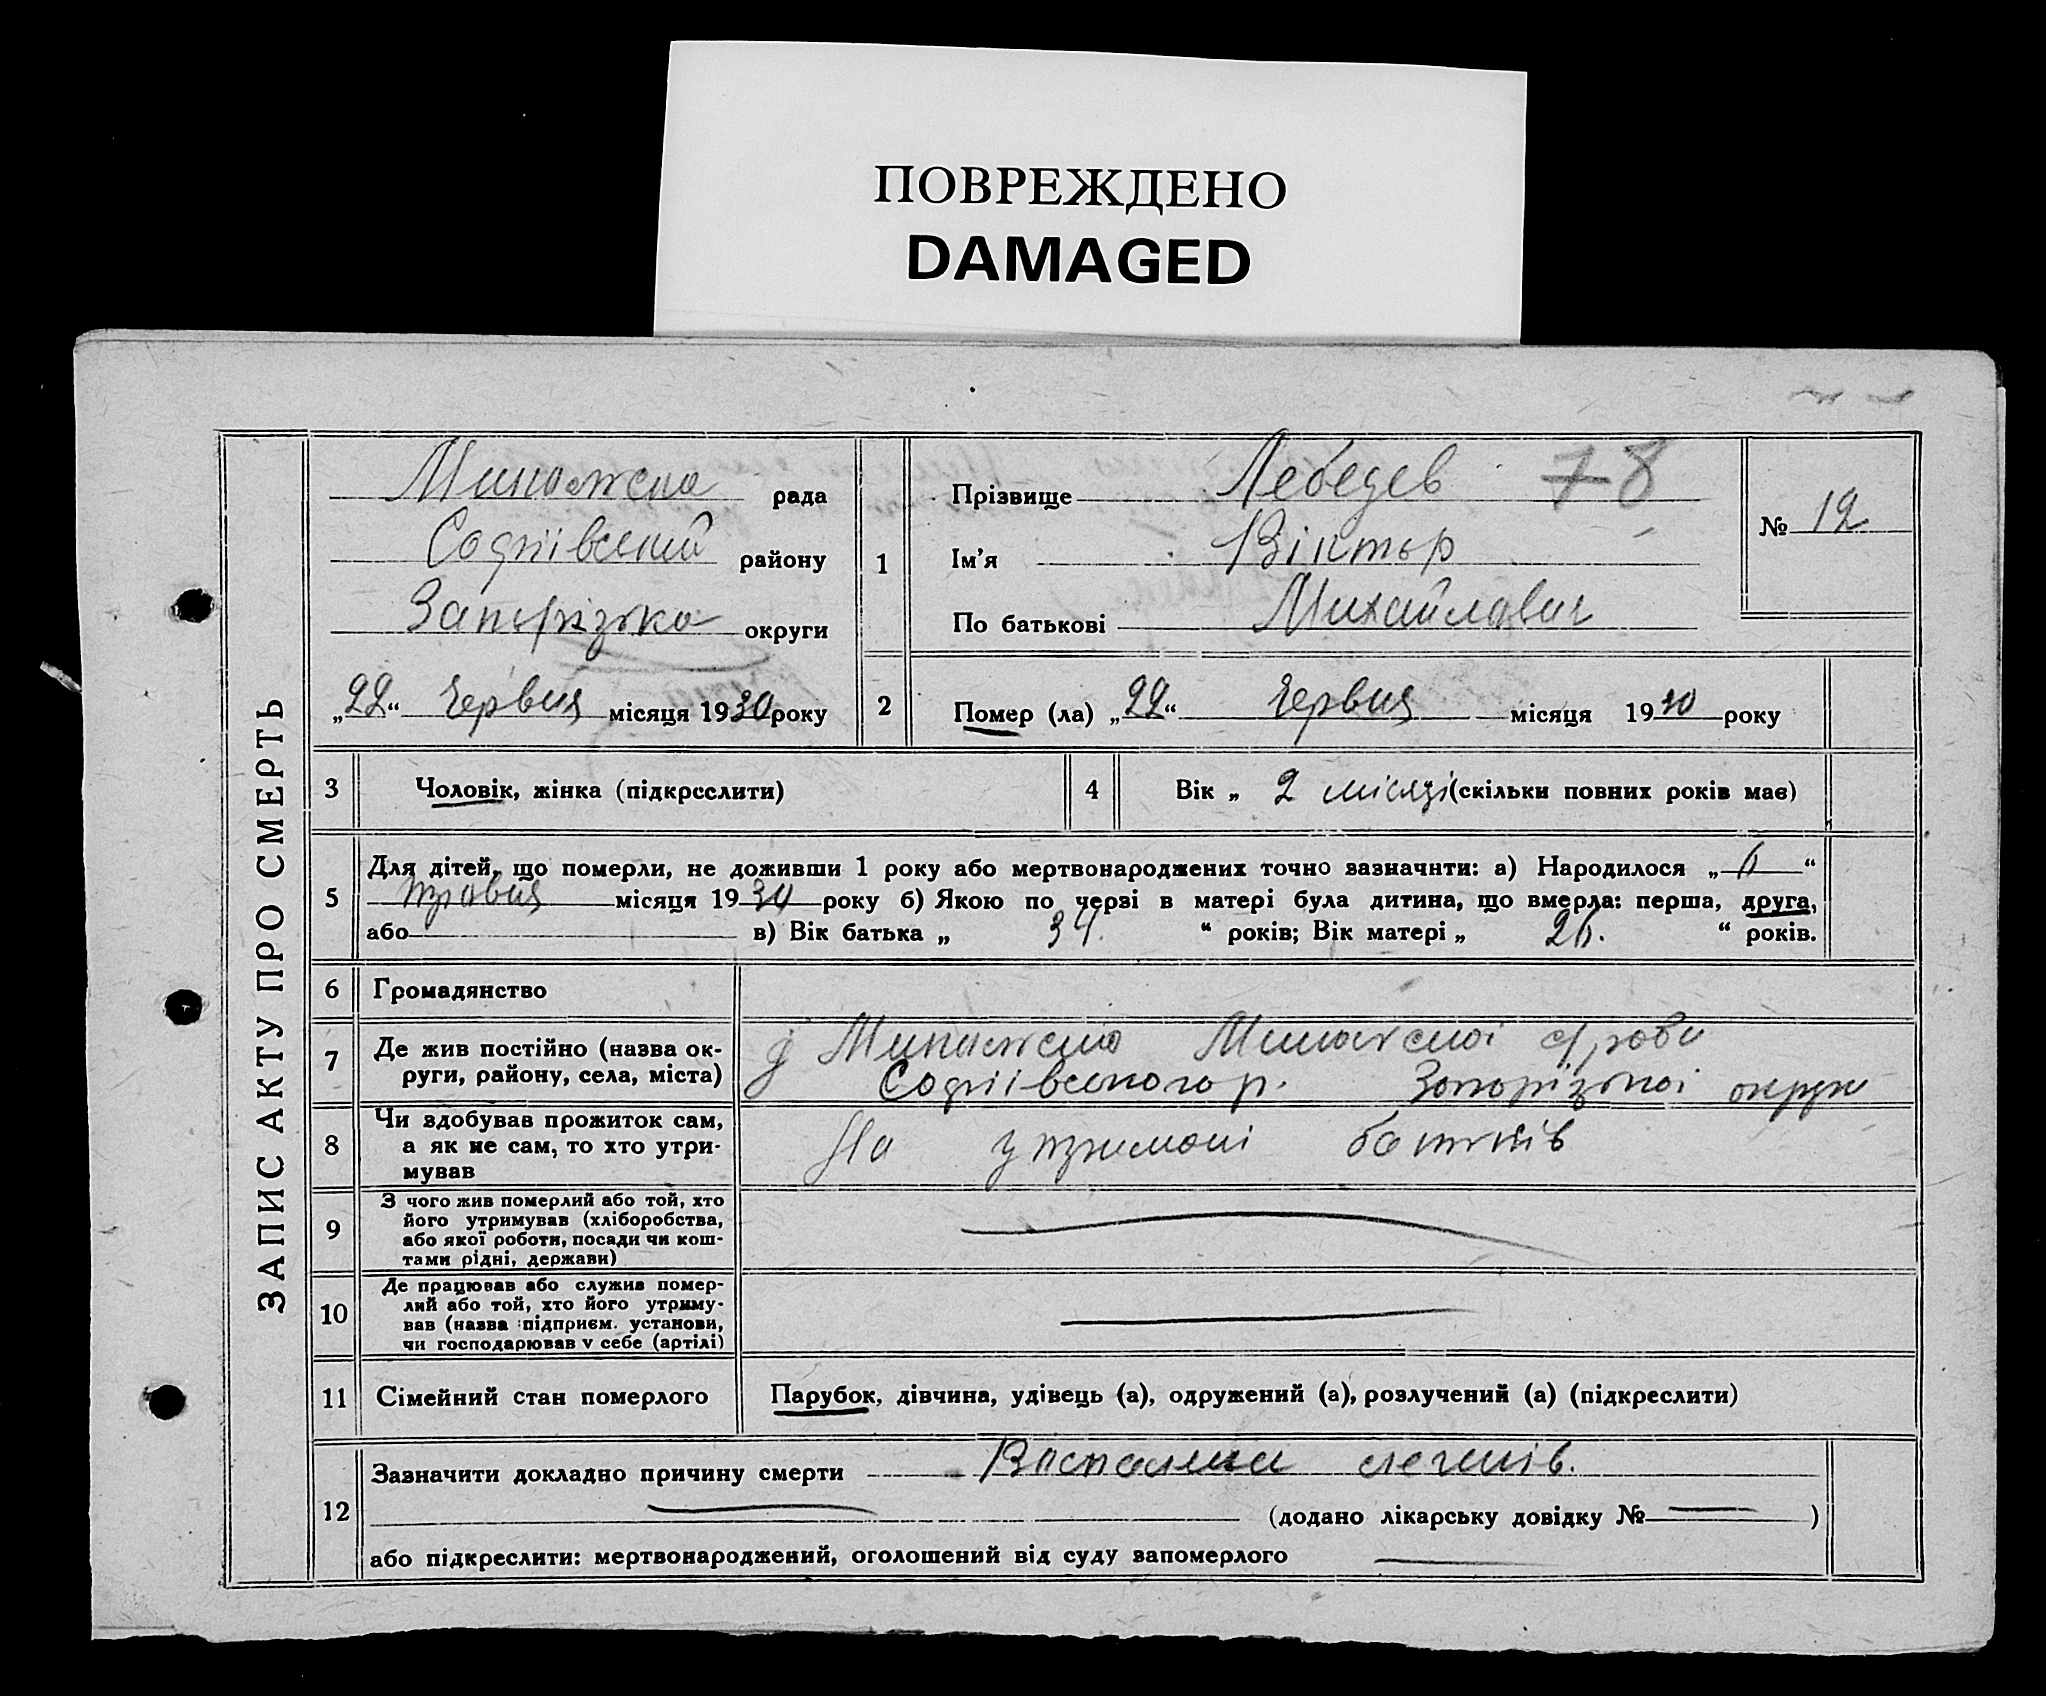 ПОВРЕЖДЕНО
DAMAGED
ЗАПИС АКТУ ПРО СМЕРТЬ
рада
Софіївський району
Запорізька округи
„22“ Червня місяця 1930 року
1
Прізвище Лебедєв 78
Ім'я Віктор
По батькові Михайлович
№ 12
2 Помер (ла) „22“ Червня місяця 1930 року
3 Чоловік, жінка (підкреслити)
4 Вік „ 2 місяці (скільки повних років має)
5 Для дітей, що померли, не доживши 1 року або мертвонароджених точно зазначити: а) Народилося „6“
травня місяця 1930 року б) Якою по черзі в матері була дитина, що вмерла: перша, друга,
або в) Вік батька „ 34. “ років; Вік матері „ 26. “ років.
6 Громадянство
7 Де жив постійно (назва ок-
руги, району, села, міста)
с/ради
Софіївського р. Запорізької округи
8 Чи здобував прожиток сам,
а як не сам, то хто утри-
мував
На утримані батьків
9 З чого жив померлий або той, хто
його утримував (хліборобства,
або якої роботи, посади чи кош-
тами рідні, держави)
10 Де працював або служив помер-
лий або той, хто його утриму-
вав (назва підприєм. установи,
чи господарював у себе (артілі)
11 Сімейний стан померлого
Парубок, дівчина, удівець (а), одружений (а), розлучений (а) (підкреслити)
12 Зазначити докладно причину смерти Воспалення легенів.
(додано лікарську довідку № )
або підкреслити: мертвонароджений, оголошений від суду запомерлого